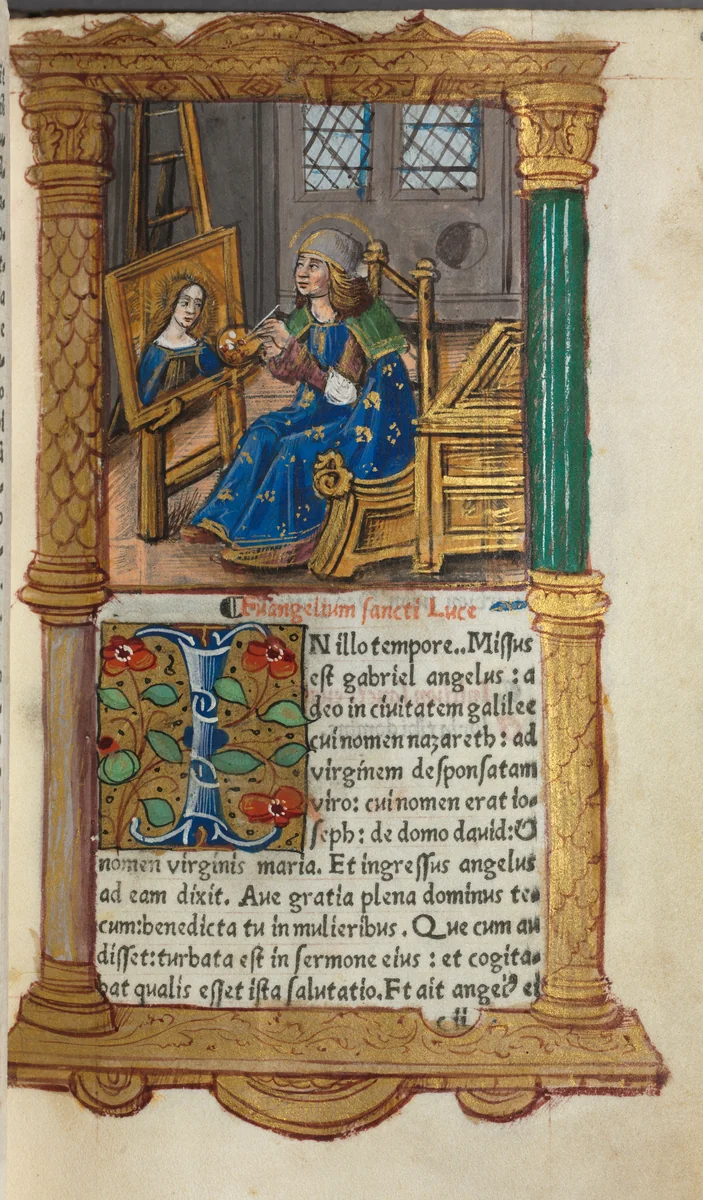 Euangelium sancti Luce
IN illo tempore.. Missus
est gabriel angelus : a
deo in ciuitatem galilee
cui nomen nazareth : ad
virginem desponsatam
viro: cui nomen erat io-
seph: de domo dauid: &
nomen virginis maria. Et ingressus angelus
ad eam dixit. Aue gratia plena dominus te-
cum:benedicta tu in mulieribus. Que cum au
disset:turbata est in sermone eius : et cogita-
bat qualis esset ista salutatio. Et ait angelꝰ ei